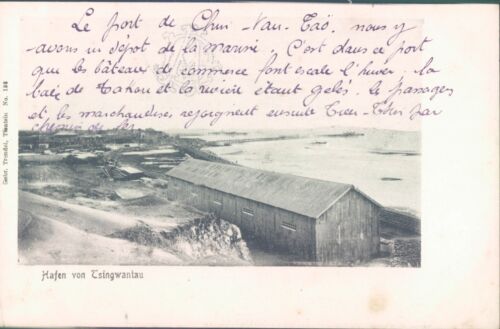 Le port de Chin-Van-Tao, nous y
avons un dépot de la marine. C'est dans ce port
que les bâteaux de commerce font escale l'hiver, la
baie de Takou et la rivière étant gelés. Le passagers
et les marchandises, rejoignent ensuite Tien-Tsin par
chemin de fer.
Hafen von Tsingwantau
Gebr. Trendel, Tientsin No. 188